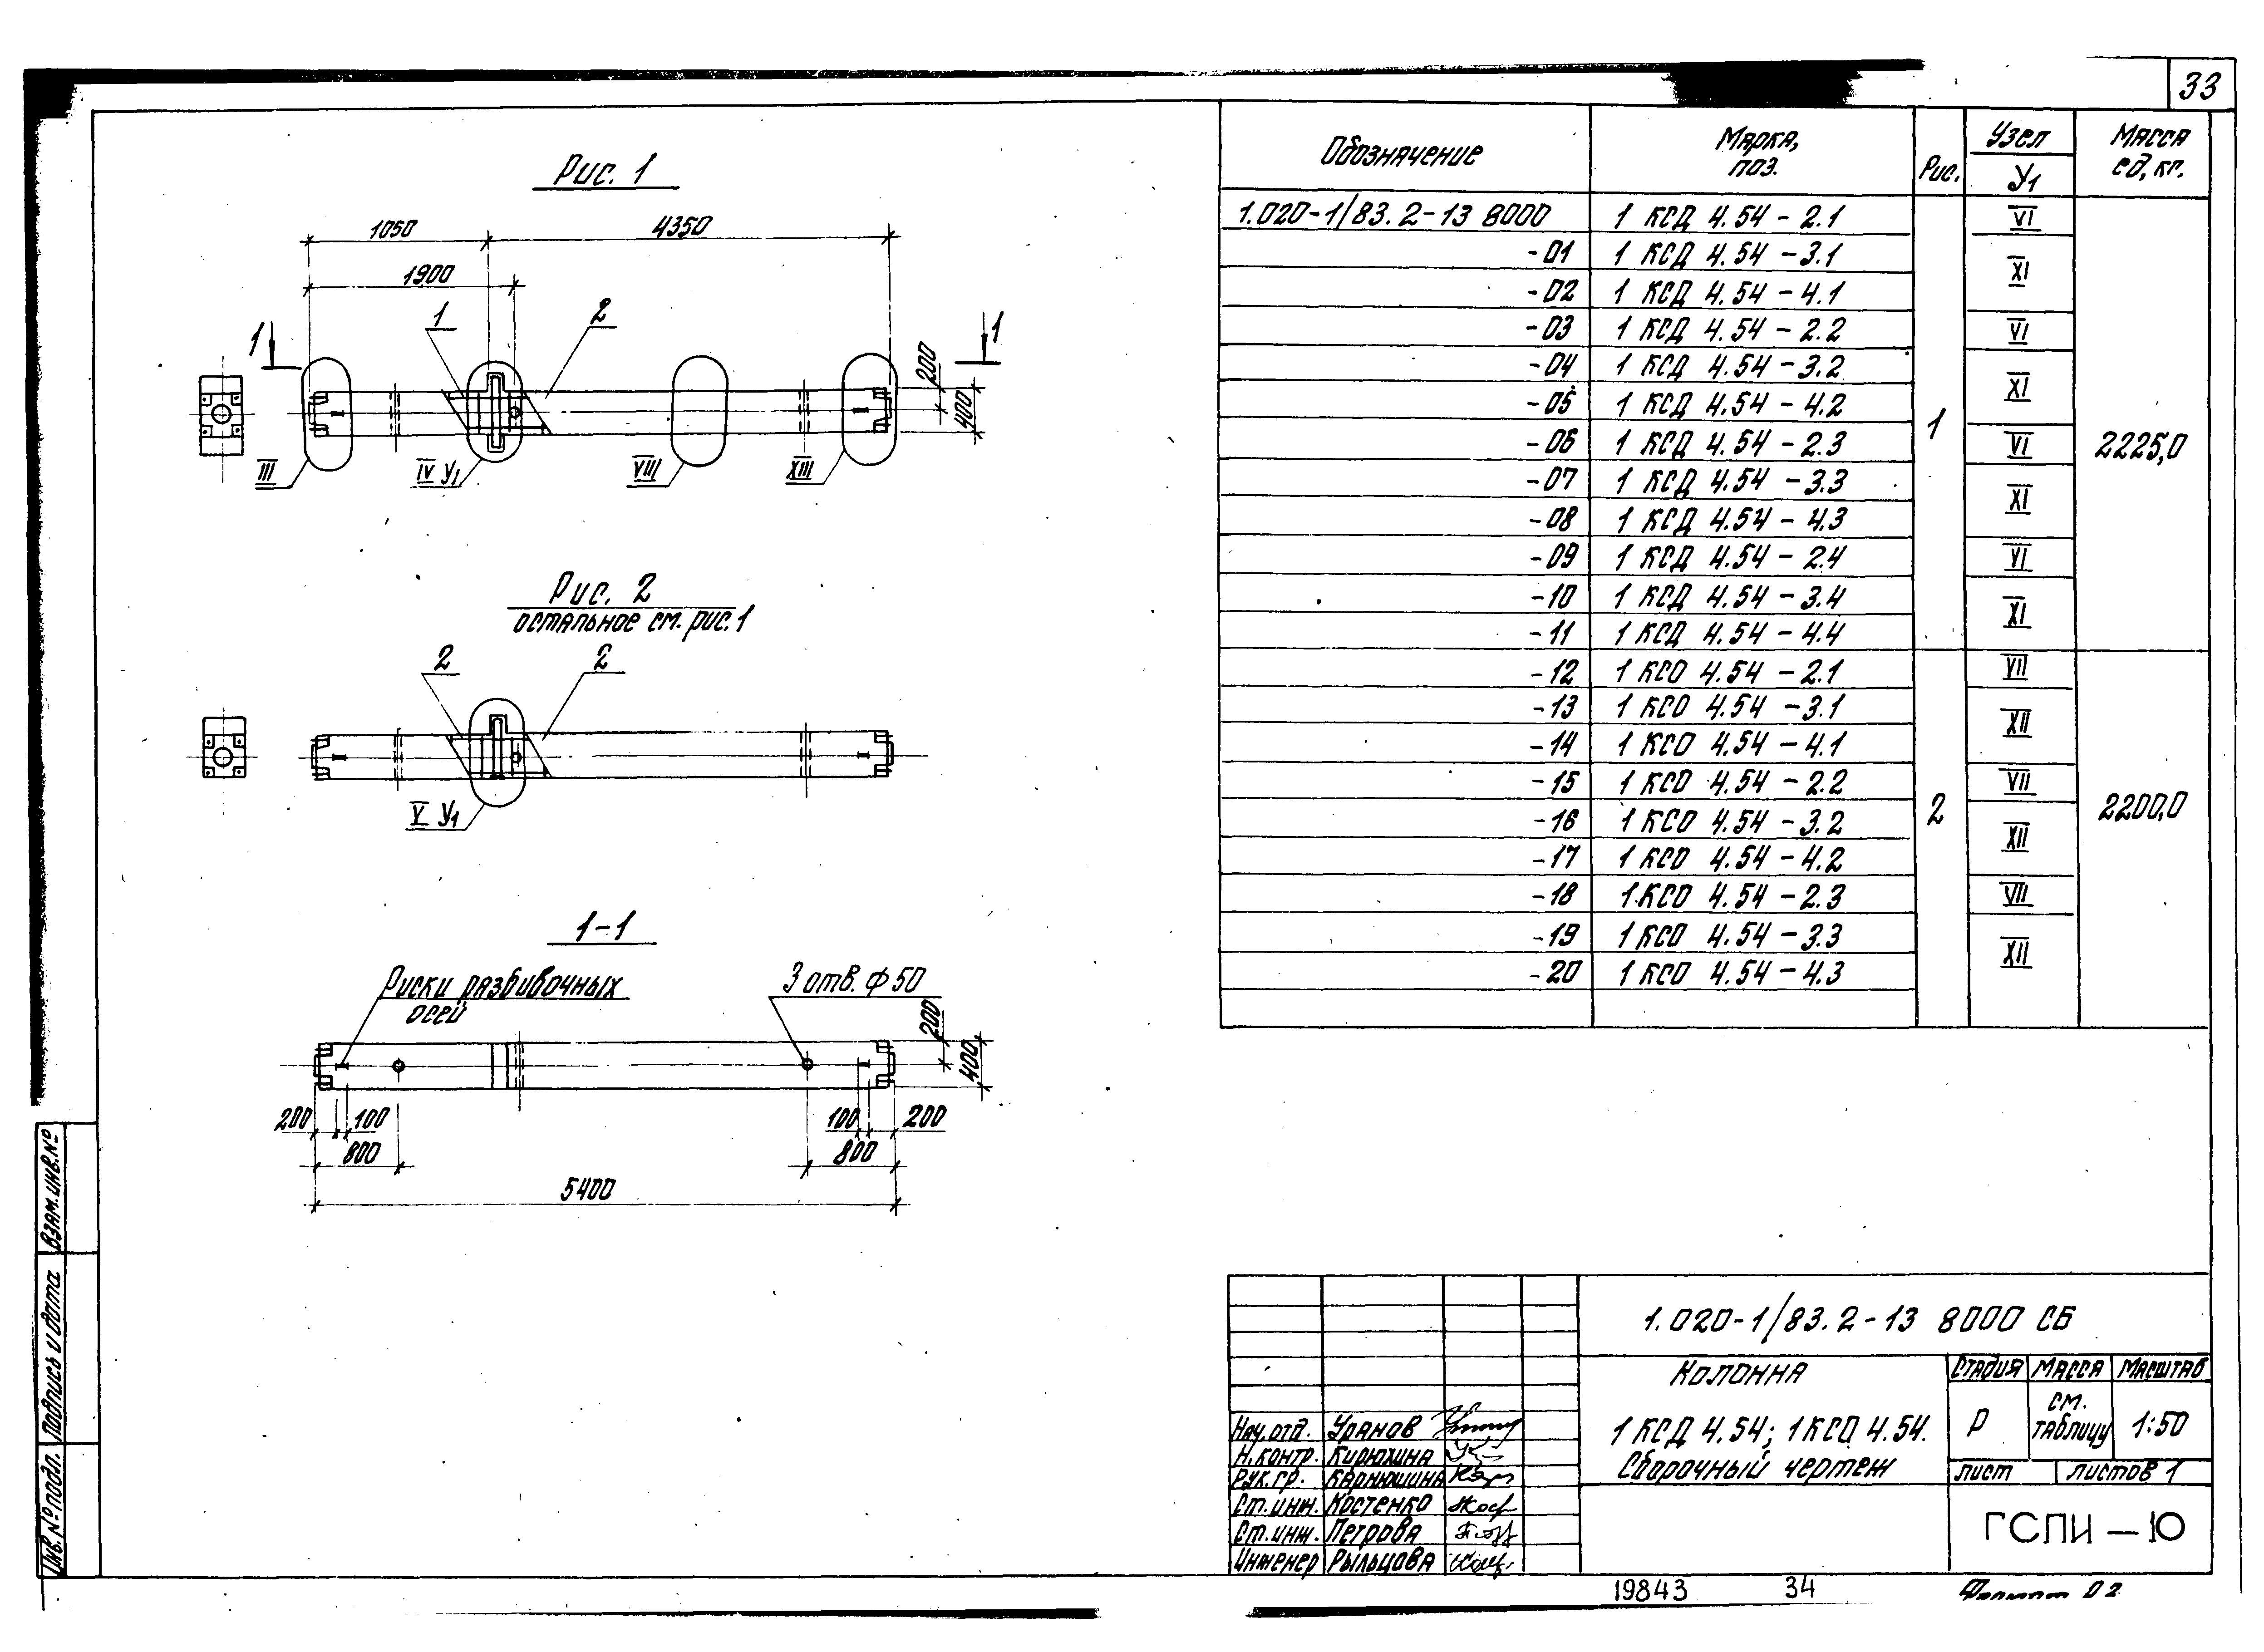 33
Рис. 1
1050
4350
1900
1
2
1
1
200
400
III
IV У1
VIII
XIII
Рис. 2
остальное см. рис. 1
2
2
V У1
1-1
Риски разбивочных
осей
3 отв. ф 50
200
400
200
100
100
200
800
800
5400
Обозначение
Марка,
поз.
Рис.
Узел
У1
Масса
ед, кг.
1.020-1/83.2-13 8000 1 КСД 4.54-2.1 VI
-01 1 КСД 4.54-3.1 XI
-02 1 КСД 4.54-4.1
-03 1 КСД 4.54-2.2 VI
-04 1 КСД 4.54-3.2 XI
-05 1 КСД 4.54-4.2
1
-06 1 КСД 4.54-2.3 VI
2225,0
-07 1 КСД 4.54-3.3 XI
-08 1 КСД 4.54-4.3
-09 1 КСД 4.54-2.4 VI
-10 1 КСД 4.54-3.4 XI
-11 1 КСД 4.54-4.4
-12 1 КСО 4.54-2.1 VII
-13 1 КСО 4.54-3.1 XII
-14 1 КСО 4.54-4.1
-15 1 КСО 4.54-2.2 VII
2
2200,0
-16 1 КСО 4.54-3.2 XII
-17 1 КСО 4.54-4.2
-18 1 КСО 4.54-2.3 VII
-19 1 КСО 4.54-3.3 XII
-20 1 КСО 4.54-4.3
Взам. инв. №
Подпись и дата
Инв. № подл.
1.020-1/83.2-13 8000 СБ
Колонна
1 КСД 4.54; 1 КСО 4.54.
Сборочный чертеж
Стадия Масса Масштаб
Р см. таблицу 1:50
лист листов 1
ГСПИ-10
Нач. отд. Уранов
Н. контр. Кирюхина
Рук. гр. Карнюшина
Ст. инж. Костенко
Ст. инж. Петрова
Инженер Рыльцова
19843 34 Формат